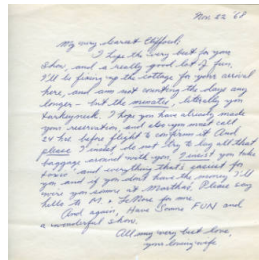 Nov. 22 68
My very dearest Clifford,
I hope the very best for your
show, and a really good lot of fun,
I'll be fixing up the cottage for your arrival
here, and am not counting the days any
longer - but the minutes, literally you
I hope you have already made
your reservation, and also you must call
24 hrs before flight to confirm it And
please I insist do not try to lug all that
baggage around with you, I insist you take
taxis and everything that's easiest for
you and if you don't have the money I'll
wire you some at Martha's. Please say
hello to M. + for me.
And again, Have Some FUN and
a wonderful show.
All my very best love,
your loving wife